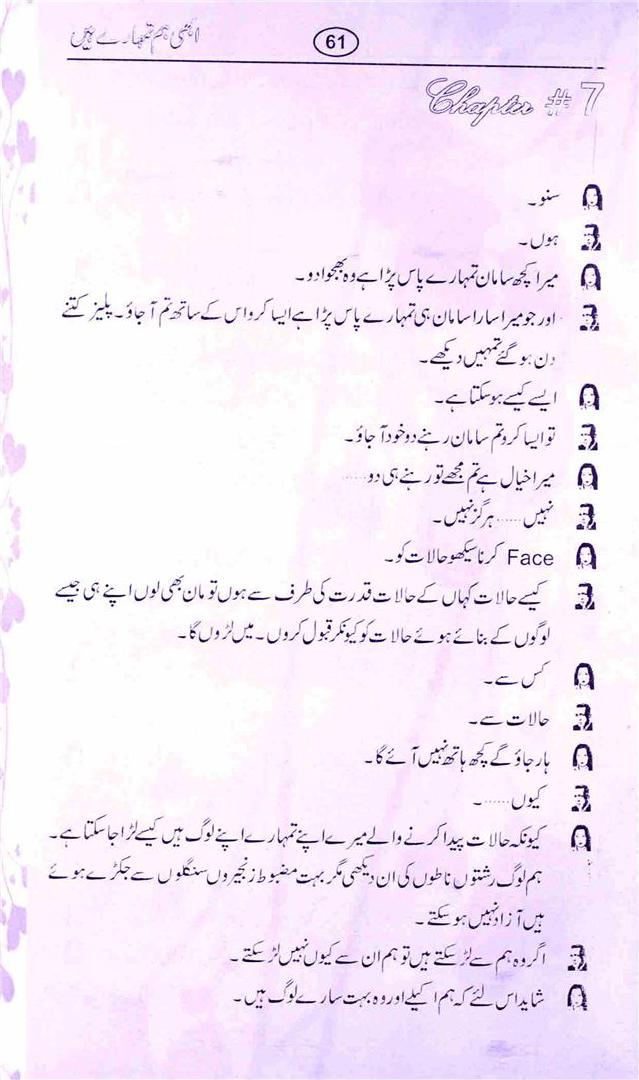 61
ابھی ہم تمہارے ہیں
Chapter # 7
سنو۔
ہوں۔
میرا کچھ سامان تمہارے پاس پڑا ہے وہ بھجوا دو۔
اور جو میرا سارا سامان ہی تمہارے پاس پڑا ہے ایسا کرو اس کے ساتھ تم آ جاؤ۔ پلیز کتنے
دن ہو گئے تمہیں دیکھے۔
ایسے کیسے ہو سکتا ہے۔
تو ایسا کرو تم سامان رہنے دو خود آ جاؤ۔
میرا خیال ہے تم مجھے تو رہنے ہی دو.....
نہیں ..... ہرگز نہیں۔
Face کرنا سیکھو حالات کو۔
کیسے حالات کہاں کے حالات قدرت کی طرف سے ہوں تو مان بھی لوں اپنے ہی جیسے
لوگوں کے بنائے ہوئے حالات کو کیونکر قبول کروں۔ میں لڑوں گا۔
کس سے۔
حالات سے۔
ہار جاؤ گے کچھ ہاتھ نہیں آئے گا۔
کیوں ......۔
کیونکہ حالات پیدا کرنے والے میرے اپنے تمہارے اپنے لوگ ہیں کیسے لڑا جا سکتا ہے۔
ہم لوگ رشتوں ناطوں کی ان دیکھی مگر بہت مضبوط زنجیروں سنگلوں سے جکڑے ہوئے
ہیں آزاد نہیں ہو سکتے۔
اگر وہ ہم سے لڑ سکتے ہیں تو ہم ان سے کیوں نہیں لڑ سکتے۔
شاید اس لئے کہ ہم اکیلے اور وہ بہت سارے لوگ ہیں۔